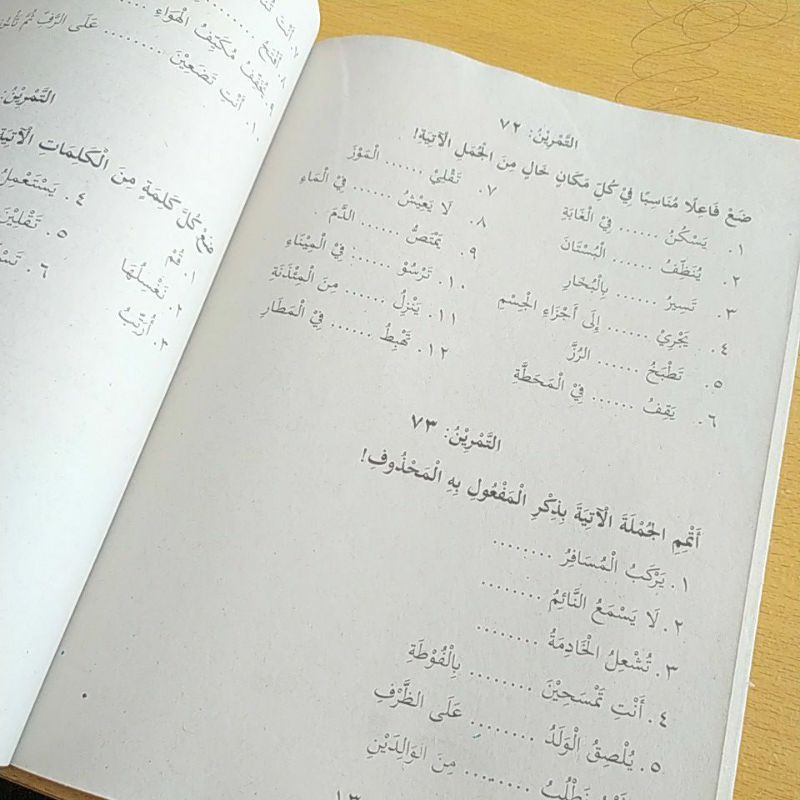 التَّمْرِيْنُ: ٧٢
ضَعْ فَاعِلًا مُنَاسِبًا فِيْ كُلِّ مَكَانٍ خَالٍ مِنَ الْجُمَلِ الْآتِيَةِ!
١. يَسْكُنُ ...... فِيْ الْغَابَةِ
٢. يُنَظِّفُ ...... الْبُسْتَانَ
٣. تَسِيرُ ...... بِالْبُخَارِ
٤. يَجْرِيْ ...... إِلَى أَجْزَاءِ الْجِسْمِ
٥. تَطْبَخُ ...... الرُزَّ
٦. يَقِفُ ...... فِيْ الْمَحَطَّةِ
٧. تَقْلِيْ ...... الْمَوْزَ
٨. لَا يَعِيْشُ ...... فِيْ الْمَاءِ
٩. يَمْتَصُّ ...... الدَّمَ
١٠. تَرْسُوْ ...... فِيْ الْمِيْنَاءِ
١١. يَنْزِلُ ...... مِنَ الْمِئْذَنَةِ
١٢. تَهْبِطُ ...... فِيْ الْمَطَارِ
التَّمْرِيْنُ: ٧٣
أَتْمِمِ الْجُمْلَةَ الْآتِيَةَ بِذِكْرِ الْمَفْعُولِ بِهِ الْمَحْذُوفِ!
١. يَرْكَبُ الْمُسَافِرُ ........
٢. لَا يَسْمَعُ النَّائِمُ ........
٣. تُشْعِلُ الْخَادِمَةُ ........
٤. أَنْتِ تَمْسَحِيْنَ ........ بِالْفُوْطَةِ
٥. يُلْصِقُ الْوَلَدُ ........ عَلَى الظَّرْفِ
نَطْلُبُ ........ مِنَ الْوَالِدَيْنِ
أَنْتِ
٧. أَفْتَحُ
٨. يُخَفِّفُ مُكَيِّفُ الْهَوَاءِ ........
٩. أَنْتِ تَضَعِيْنَ ........ عَلَى الرَّفِّ ثُمَّ
التَّمْرِيْنُ:
ضَعْ كُلَّ كَلِمَةٍ مِنَ الْكَلِمَاتِ الْآتِيَةِ
١. قُمْ
٢. نَغْسِلُهَا
٣. أُرَتِّبُ
٤. يَسْتَعْمِلُ
٥. تَقْلِيْنَ
٦.